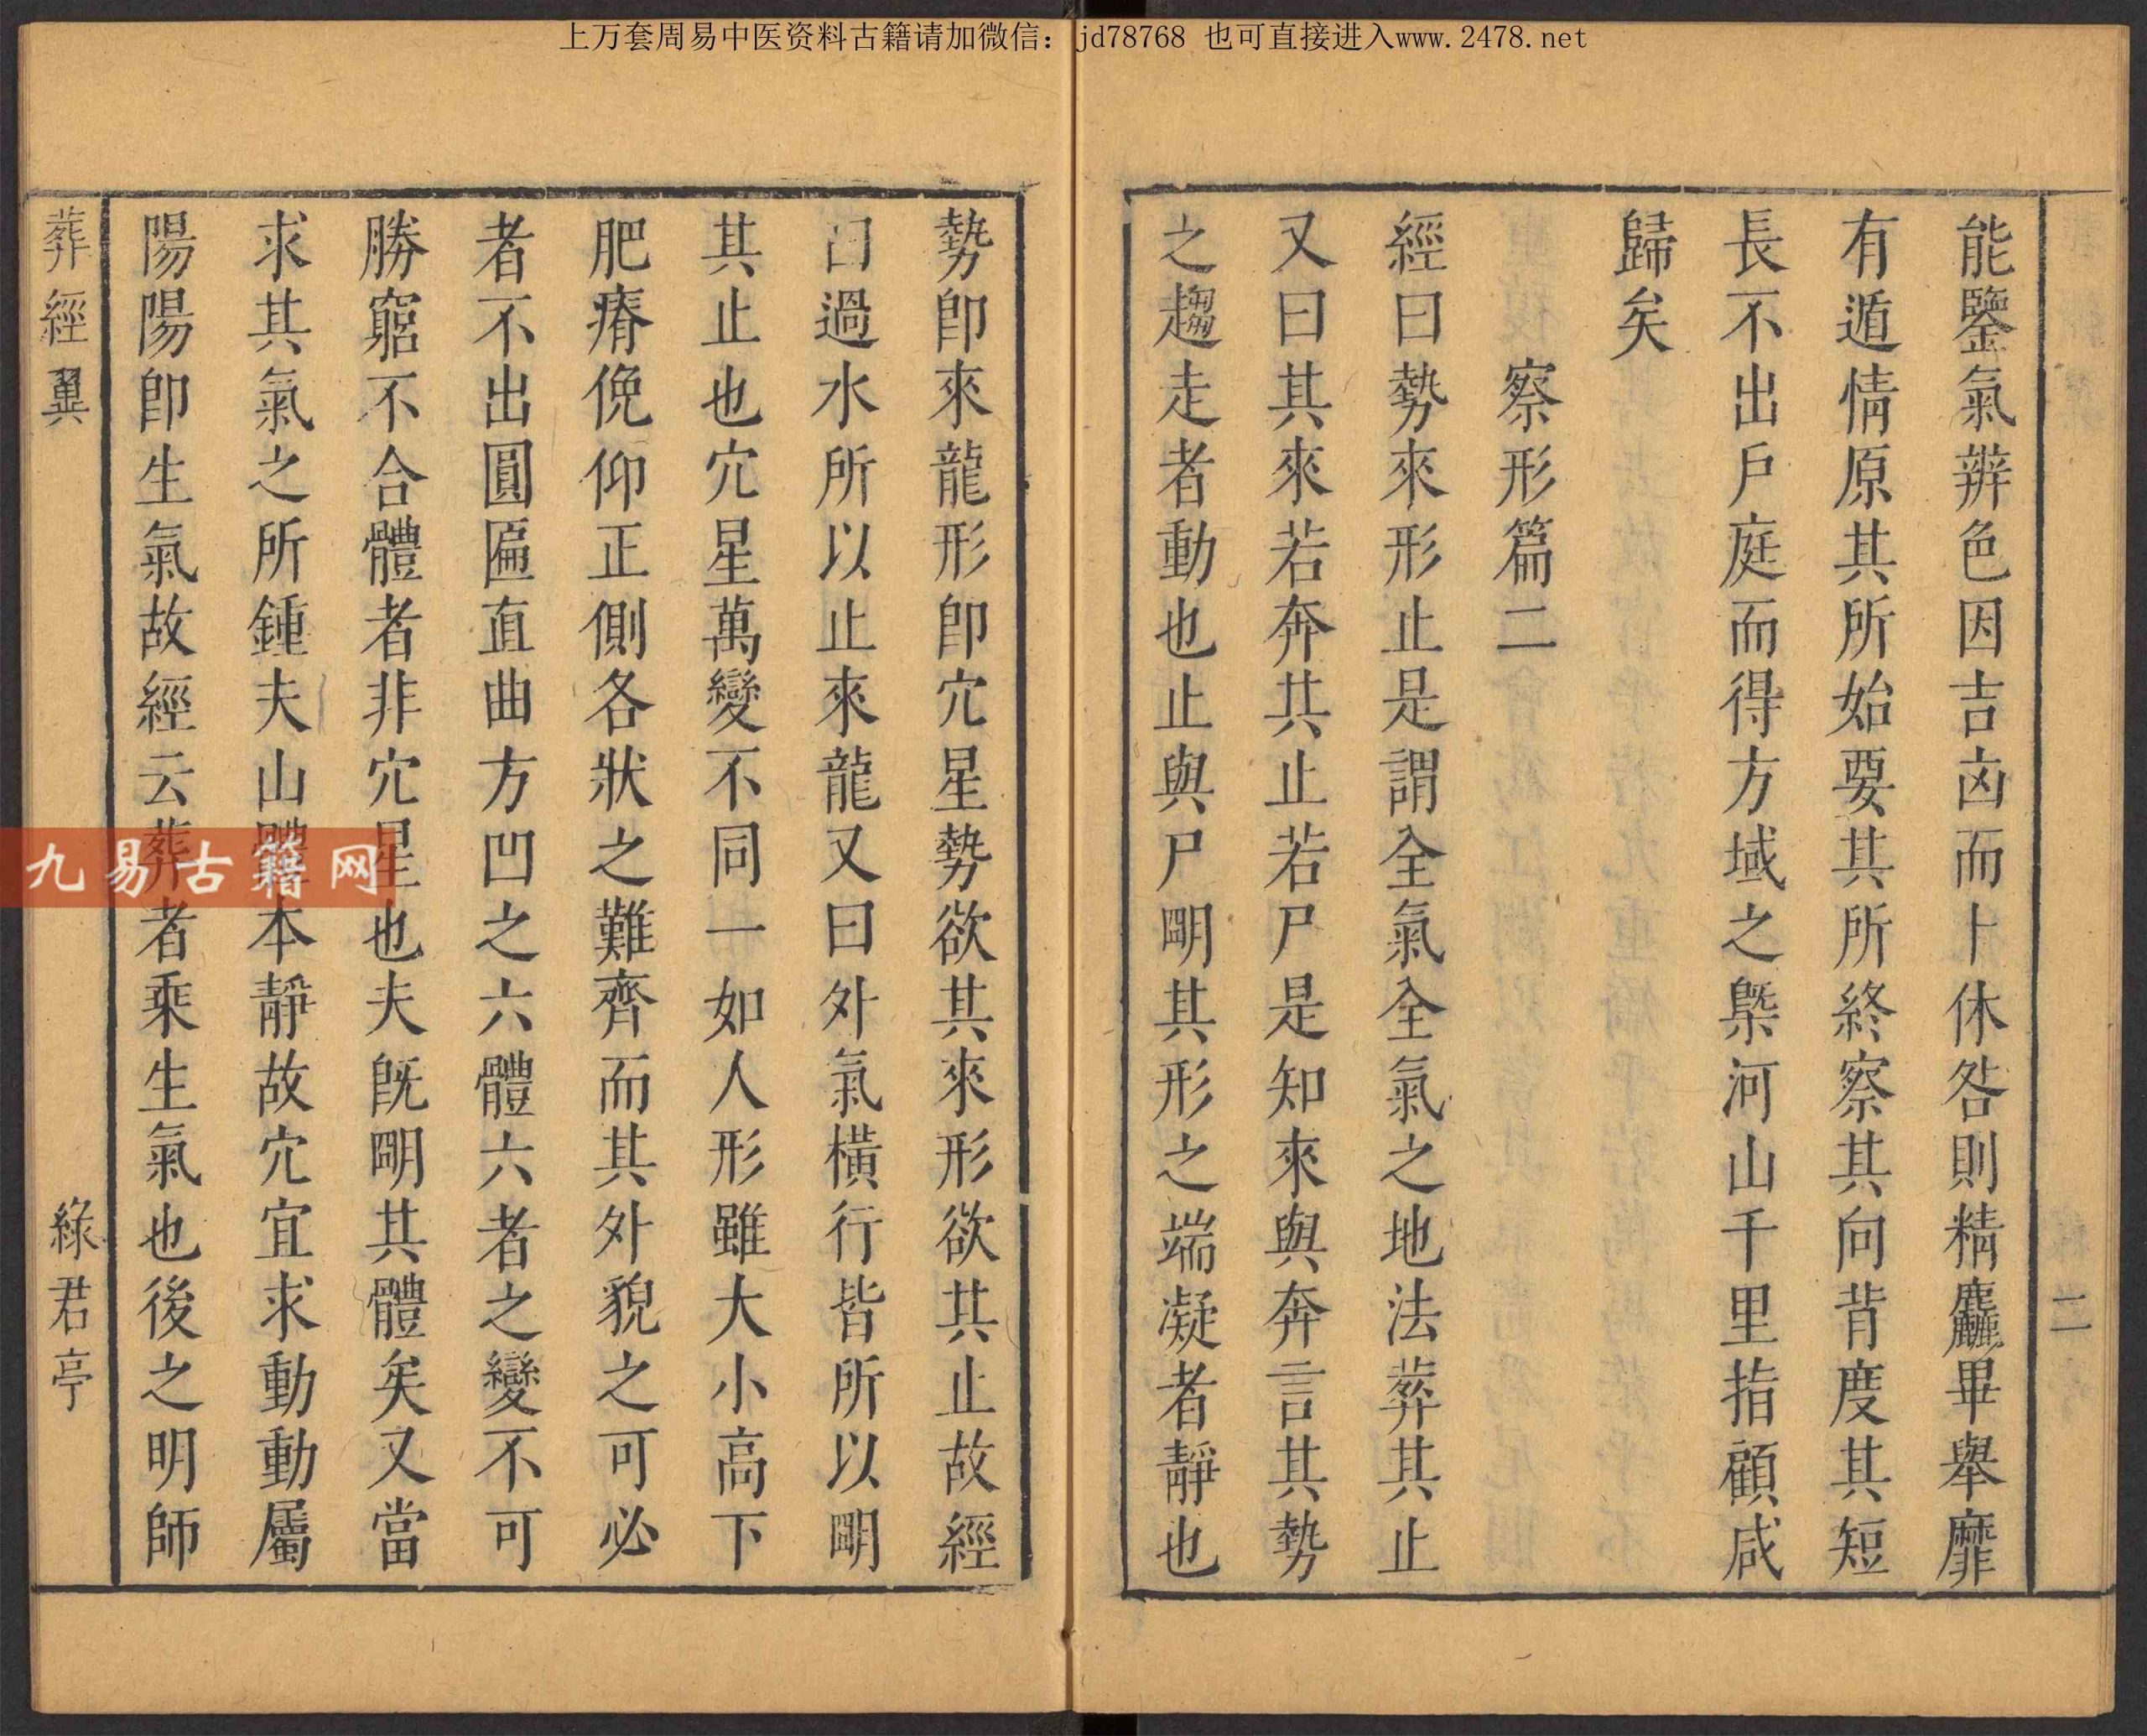 上万套周易中医资料古籍请加微信：jd78768 也可直接进入www.2478.net
二
能鑒氣辨色因吉凶而卜休咎則精麤畢舉靡
有遁情原其所始要其所終察其向背度其短
長不出戶庭而得方域之槩河山千里指顧咸
歸矣
察形篇二
經曰勢來形止是謂全氣全氣之地法葬其止
又曰其來若奔其止若尸是知來與奔言其勢
之趨走者動也止與尸朙其形之端凝者靜也
勢卽來龍形卽穴星勢欲其來形欲其止故經
曰過水所以止來龍又曰外氣橫行皆所以朙
其止也穴星萬變不同一如人形雖大小高下
肥瘠俛仰正側各狀之難齊而其外貌之可必
者不出圓匾直曲方凹之六體六者之變不可
勝窮不合體者非穴星也夫旣朙其體矣又當
求其氣之所鍾夫山體本靜故穴宜求動動屬
陽陽卽生氣故經云葬者乘生氣也後之明師
葬經翼
綠君亭
九易古籍网